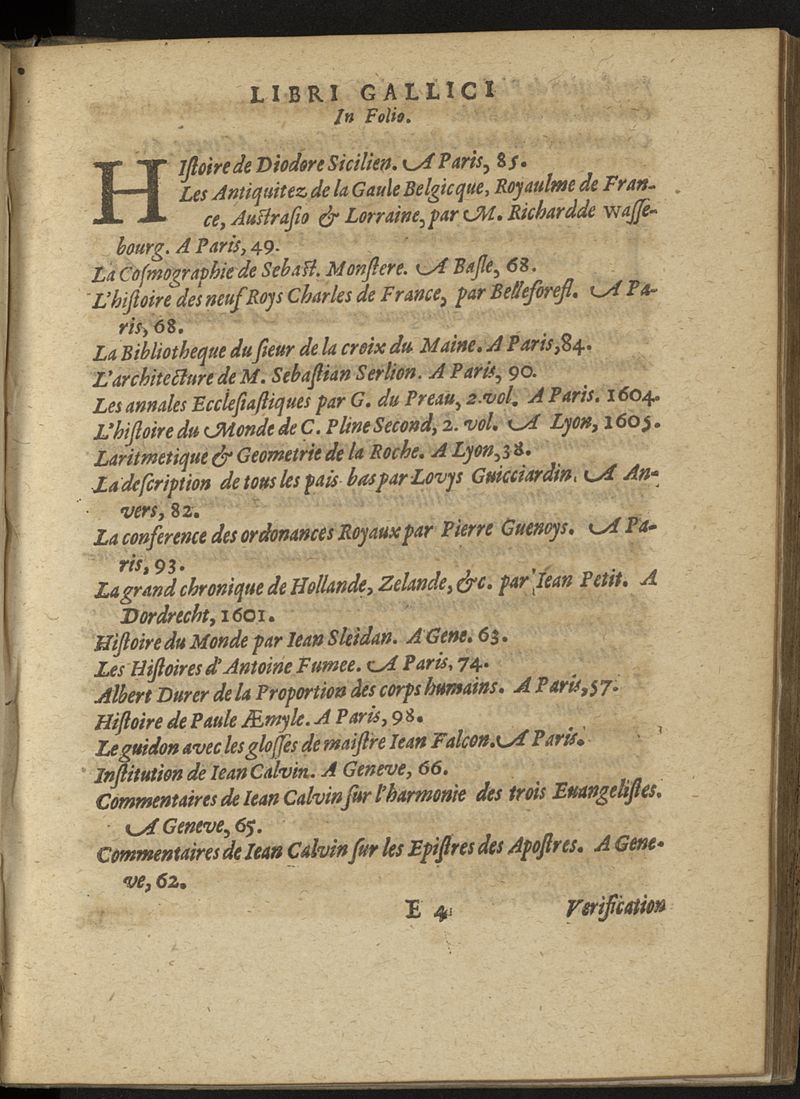 LIBRI GALLICI
In Folio.
HIſtoire de Diodore Sicilien. A Paris, 85.
Les Antiquitez de la Gaule Belgicque, Royaulme de Fran-
ce, Auſtraſio & Lorraine, par M. Richardde Waſſe-
bourg. A Paris, 49.
La Coſmographie de Sebaſt. Monſtere. A Baſle, 68.
L'hiſtoire des neuf Roys Charles de France, par Belleforeſt. A Pa-
ris, 68.
La Bibliotheque du ſieur de la croix du Maine. A Paris, 84.
L'architecture de M. Sebaſtian Serlion. A Paris, 90.
Les annales Eccleſiaſtiques par G. du Preau, 2. vol. A Paris. 1604.
L'hiſtoire du Monde de C. Pline Second, 2. vol. A Lyon, 1605.
Laritmetique & Geometrie de la Roche. A Lyon, 38.
La deſcription de tous les pais bas par Lovys Guicciardin. A An-
vers, 82.
La conference des ordonances Royaux par Pierre Guenoys. A Pa-
ris, 93.
La grand chronique de Hollande, Zelande, &c. par Iean Petit. A
Dordrecht, 1601.
Hiſtoire du Monde par Iean Sleidan. A Gene. 63.
Les Hiſtoires d'Antoine Fumee. A Paris, 74.
Albert Durer de la Proportion des corps humains. A Paris, 57.
Hiſtoire de Paule Æmyle. A Paris, 98.
Le guidon avec les gloſſes de maiſtre Iean Falcon. A Paris.
Inſtitution de Iean Calvin. A Geneve, 66.
Commentaires de Iean Calvin ſur l'harmonie des trois Euangeliſtes.
A Geneve, 65.
Commentaires de Iean Calvin ſur les Epiſtres des Apoſtres. A Gene-
ve, 62.
E 4 Verification